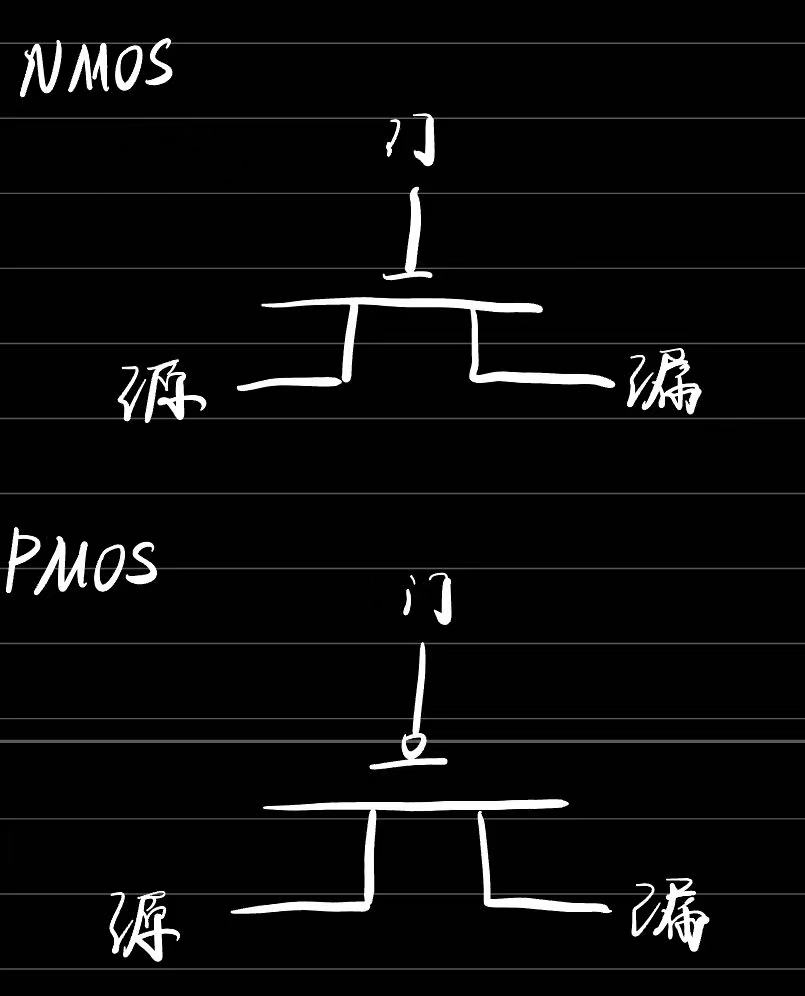 NMOS
门
源 漏
PMOS
门
源 漏